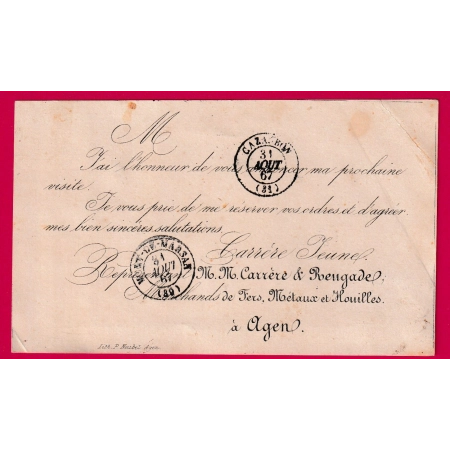 M
J'ai l'honneur de vous ma prochaine
visite.
Je vous prie de me réserver vos ordres et d'agréer
mes bien sincères salutations.
Carrère Jeune.
M.M. Carrère & Rengade,
de Fers, Métaux et Houilles.
à Agen.
31
AOUT
67
(31)
MONT-DE-MARSAN
31
AOUT
67
(39)
Lith.